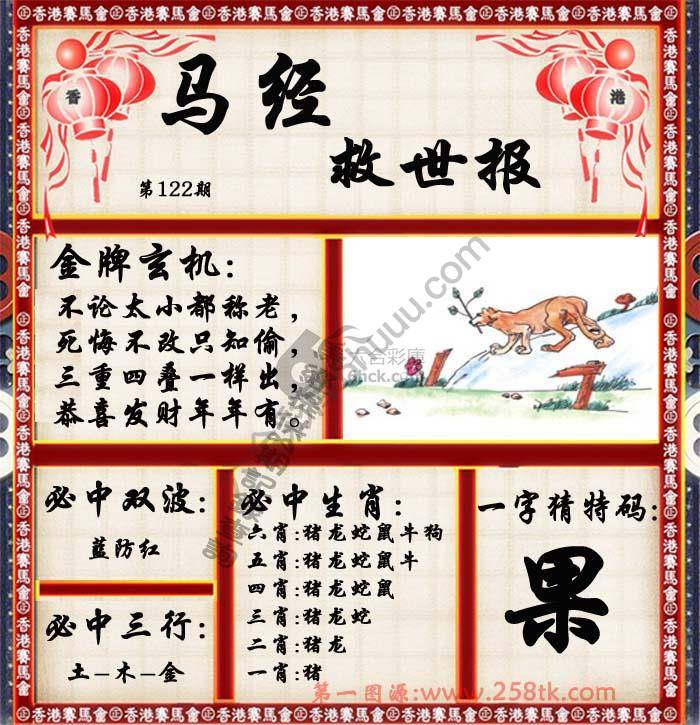 香港賽馬會
香
港
马经
救世报
第122期
金牌玄机:
不论太小都称老,
死悔不改只知偷,
三重四叠一样出,
恭喜发财年年有。
必中双波:
蓝防红
必中三行:
土-木-金
必中生肖:
六肖:猪龙蛇鼠牛狗
五肖:猪龙蛇鼠牛
四肖:猪龙蛇鼠
三肖:猪龙蛇
二肖:猪龙
一肖:猪
一字猜特码:
果
第一图源:www.258tk.com